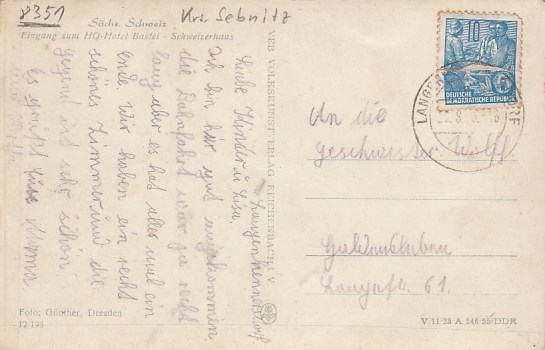 8351
Krs. Sebnitz
Sächs. Schweiz
Eingang zum HO-Hotel Bastei - Schweizerhaus
Liebe Kinder u. Lisa.
Ich bin hier gut angekommen,
die Bahnfahrt war ja recht
lang aber es hat alles mal ein
Ende. Wir haben ein recht
schönes Zimmer und die
Gegend ist sehr schön.
Es grüßt Eure Mama
Foto: Günther, Dresden
12 198
VEB VOLKSKUNSTVERLAG REICHENBACH I. V.
10
DEUTSCHE
DEMOKRATISCHE REPUBLIK
An die
Geschwister Wolff
Langestr. 61.
V/11/28 A 246/55/DDR